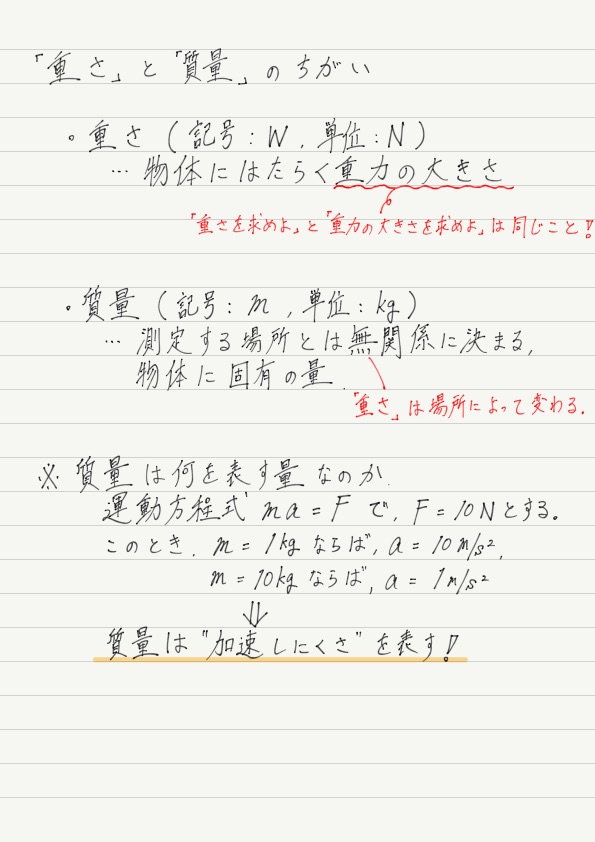 「重さ」と「質量」のちがい
・重さ（記号：W，単位：N）
… 物体にはたらく重力の大きさ
「重さを求めよ」と「重力の大きさを求めよ」は同じこと！！
・質量（記号：m，単位：kg）
… 測定する場所とは無関係に決まる，
物体に固有の量．
「重さ」は場所によって変わる．
※ 質量は何を表す量なのか．
運動方程式 ma = F で，F = 10N とする。
このとき，m = 1kg ならば，a = 10m/s²，
m = 10kg ならば，a = 1m/s²
⇓
質量は "加速しにくさ" を表す！！